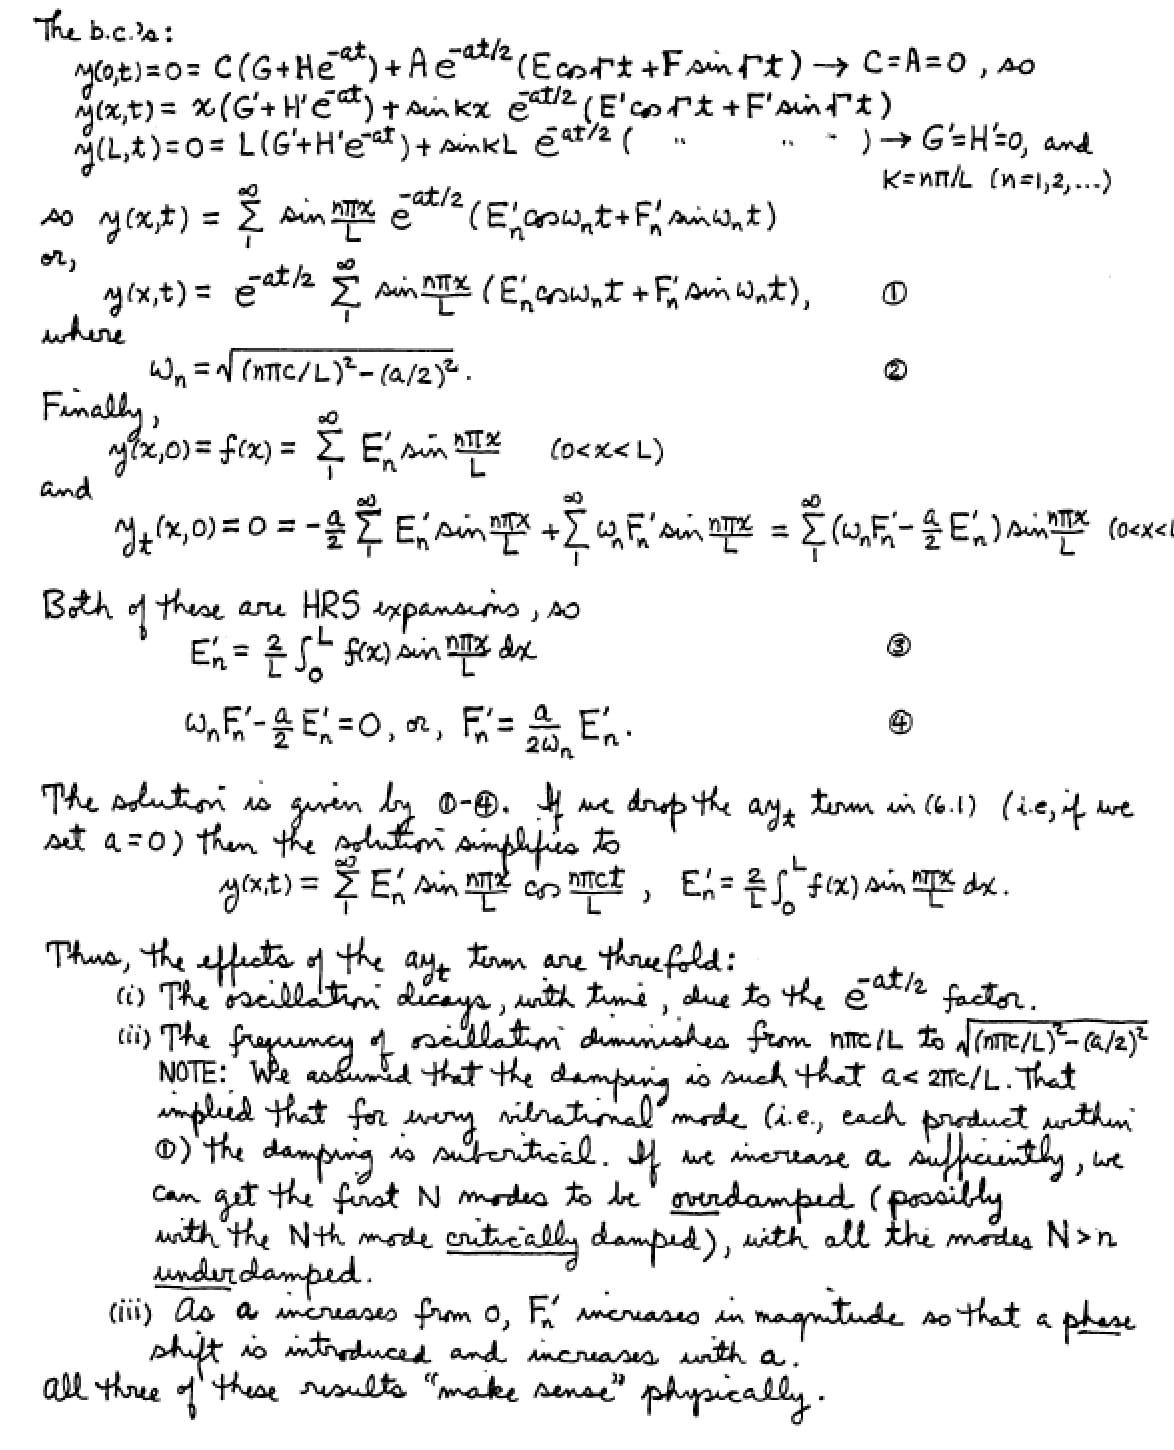 The b.c.'s:
y(0,t)=0= C(G+He^{-at})+Ae^{-at/2}(E cos rt + F sin rt) → C=A=0, so
y(x,t) = x(G'+H'e^{-at})+sin κx e^{-at/2}(E'cos rt + F'sin rt)
y(L,t)=0= L(G'+H'e^{-at})+sin κL e^{-at/2}( " " " ) → G'=H'=0, and
κ=nπ/L (n=1,2,...)
so y(x,t) = ∑_1^∞ sin nπx/L e^{-at/2}(E'_n cos ω_n t + F'_n sin ω_n t)
or,
y(x,t) = e^{-at/2} ∑_1^∞ sin nπx/L (E'_n cos ω_n t + F'_n sin ω_n t), ①
where
ω_n = √((nπc/L)² - (a/2)²). ②
Finally,
y(x,0) = f(x) = ∑_1^∞ E'_n sin nπx/L (0<x<L)
and
y_t(x,0) = 0 = -a/2 ∑_1^∞ E'_n sin nπx/L + ∑_1^∞ ω_n F'_n sin nπx/L = ∑_1^∞ (ω_n F'_n - a/2 E'_n) sin nπx/L (0<x<L
Both of these are HRS expansions, so
E'_n = 2/L ∫_0^L f(x) sin nπx/L dx ③
ω_n F'_n - a/2 E'_n = 0, or, F'_n = a/2ω_n E'_n. ④
The solution is given by ①-④. If we drop the ay_t term in (6.1) (i.e, if we
set a=0) then the solution simplifies to
y(x,t) = ∑_1^∞ E'_n sin nπx/L cos nπct/L , E'_n = 2/L ∫_0^L f(x) sin nπx/L dx.
Thus, the effects of the ay_t term are threefold:
(i) The oscillation decays, with time, due to the e^{-at/2} factor.
(ii) The frequency of oscillation diminishes from nπc/L to √((nπc/L)²-(a/2)²)
NOTE: We assumed that the damping is such that a< 2πc/L. That
implied that for every vibrational mode (i.e., each product within
①) the damping is subcritical. If we increase a sufficiently, we
can get the first N modes to be overdamped (possibly
with the Nth mode critically damped), with all the modes N>n
underdamped.
(iii) As a increases from 0, F'_n increases in magnitude so that a phase
shift is introduced and increases with a.
All three of these results "make sense" physically.